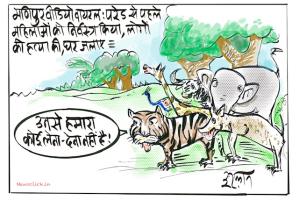 मणिपुर वीडियो वायरल: परेड से पहले
महिलाओं को निर्वस्त्र किया, लोगों
की हत्या की, घर जलाए -
उनसे हमारा
कोई लेना-देना नहीं है!
Newsclick.in
इरफ़ान